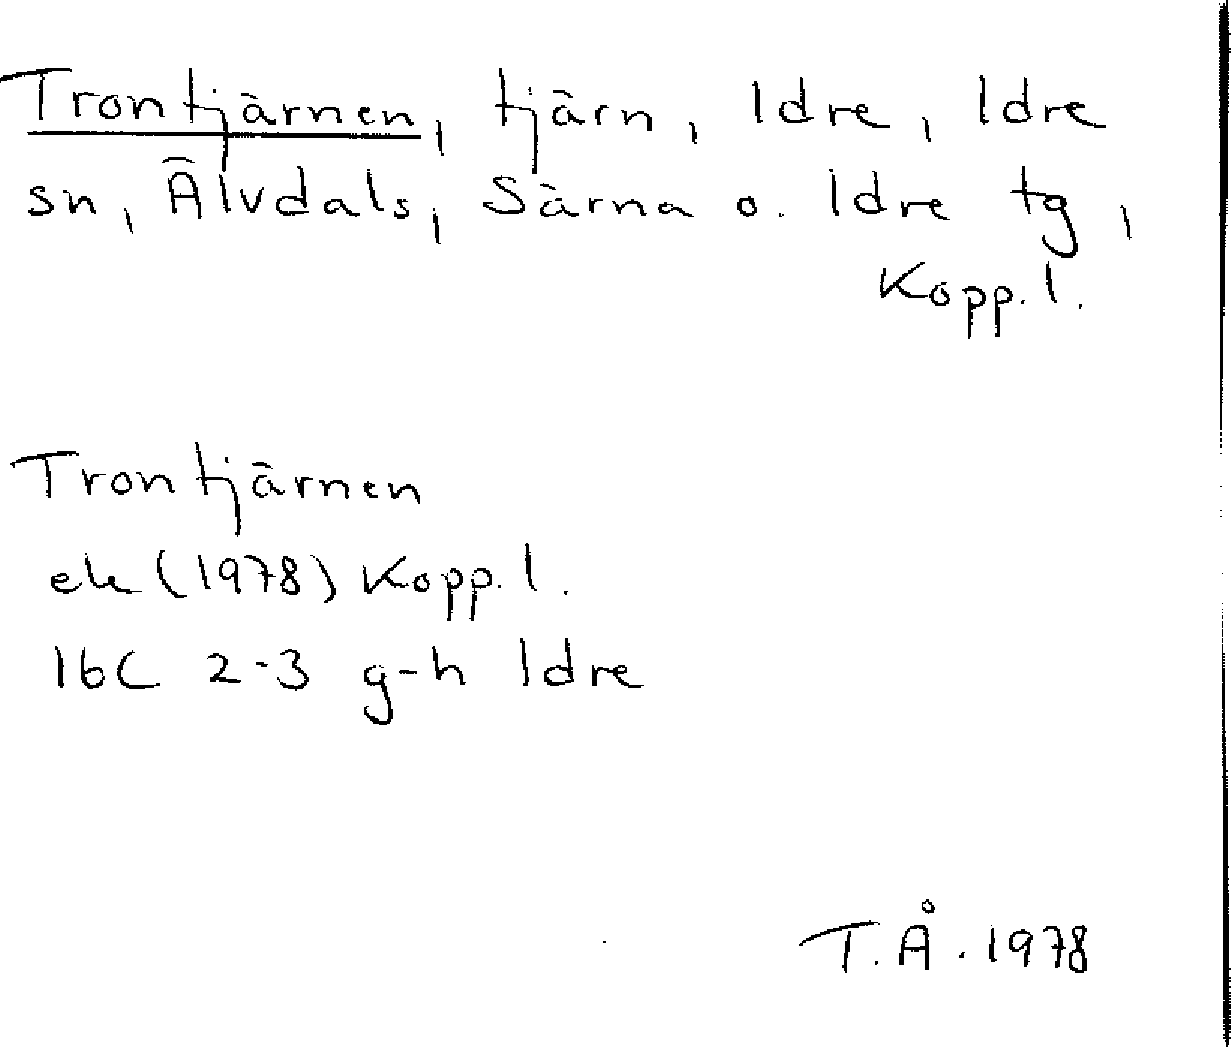 Trontjärnen, tjärn, Idre, Idre
sn, Älvdals, Särna o. Idre tg,
Kopp. l.
Trontjärnen
ek (1978) Kopp. l.
16C 2-3 g-h Idre
T. Å. 1978